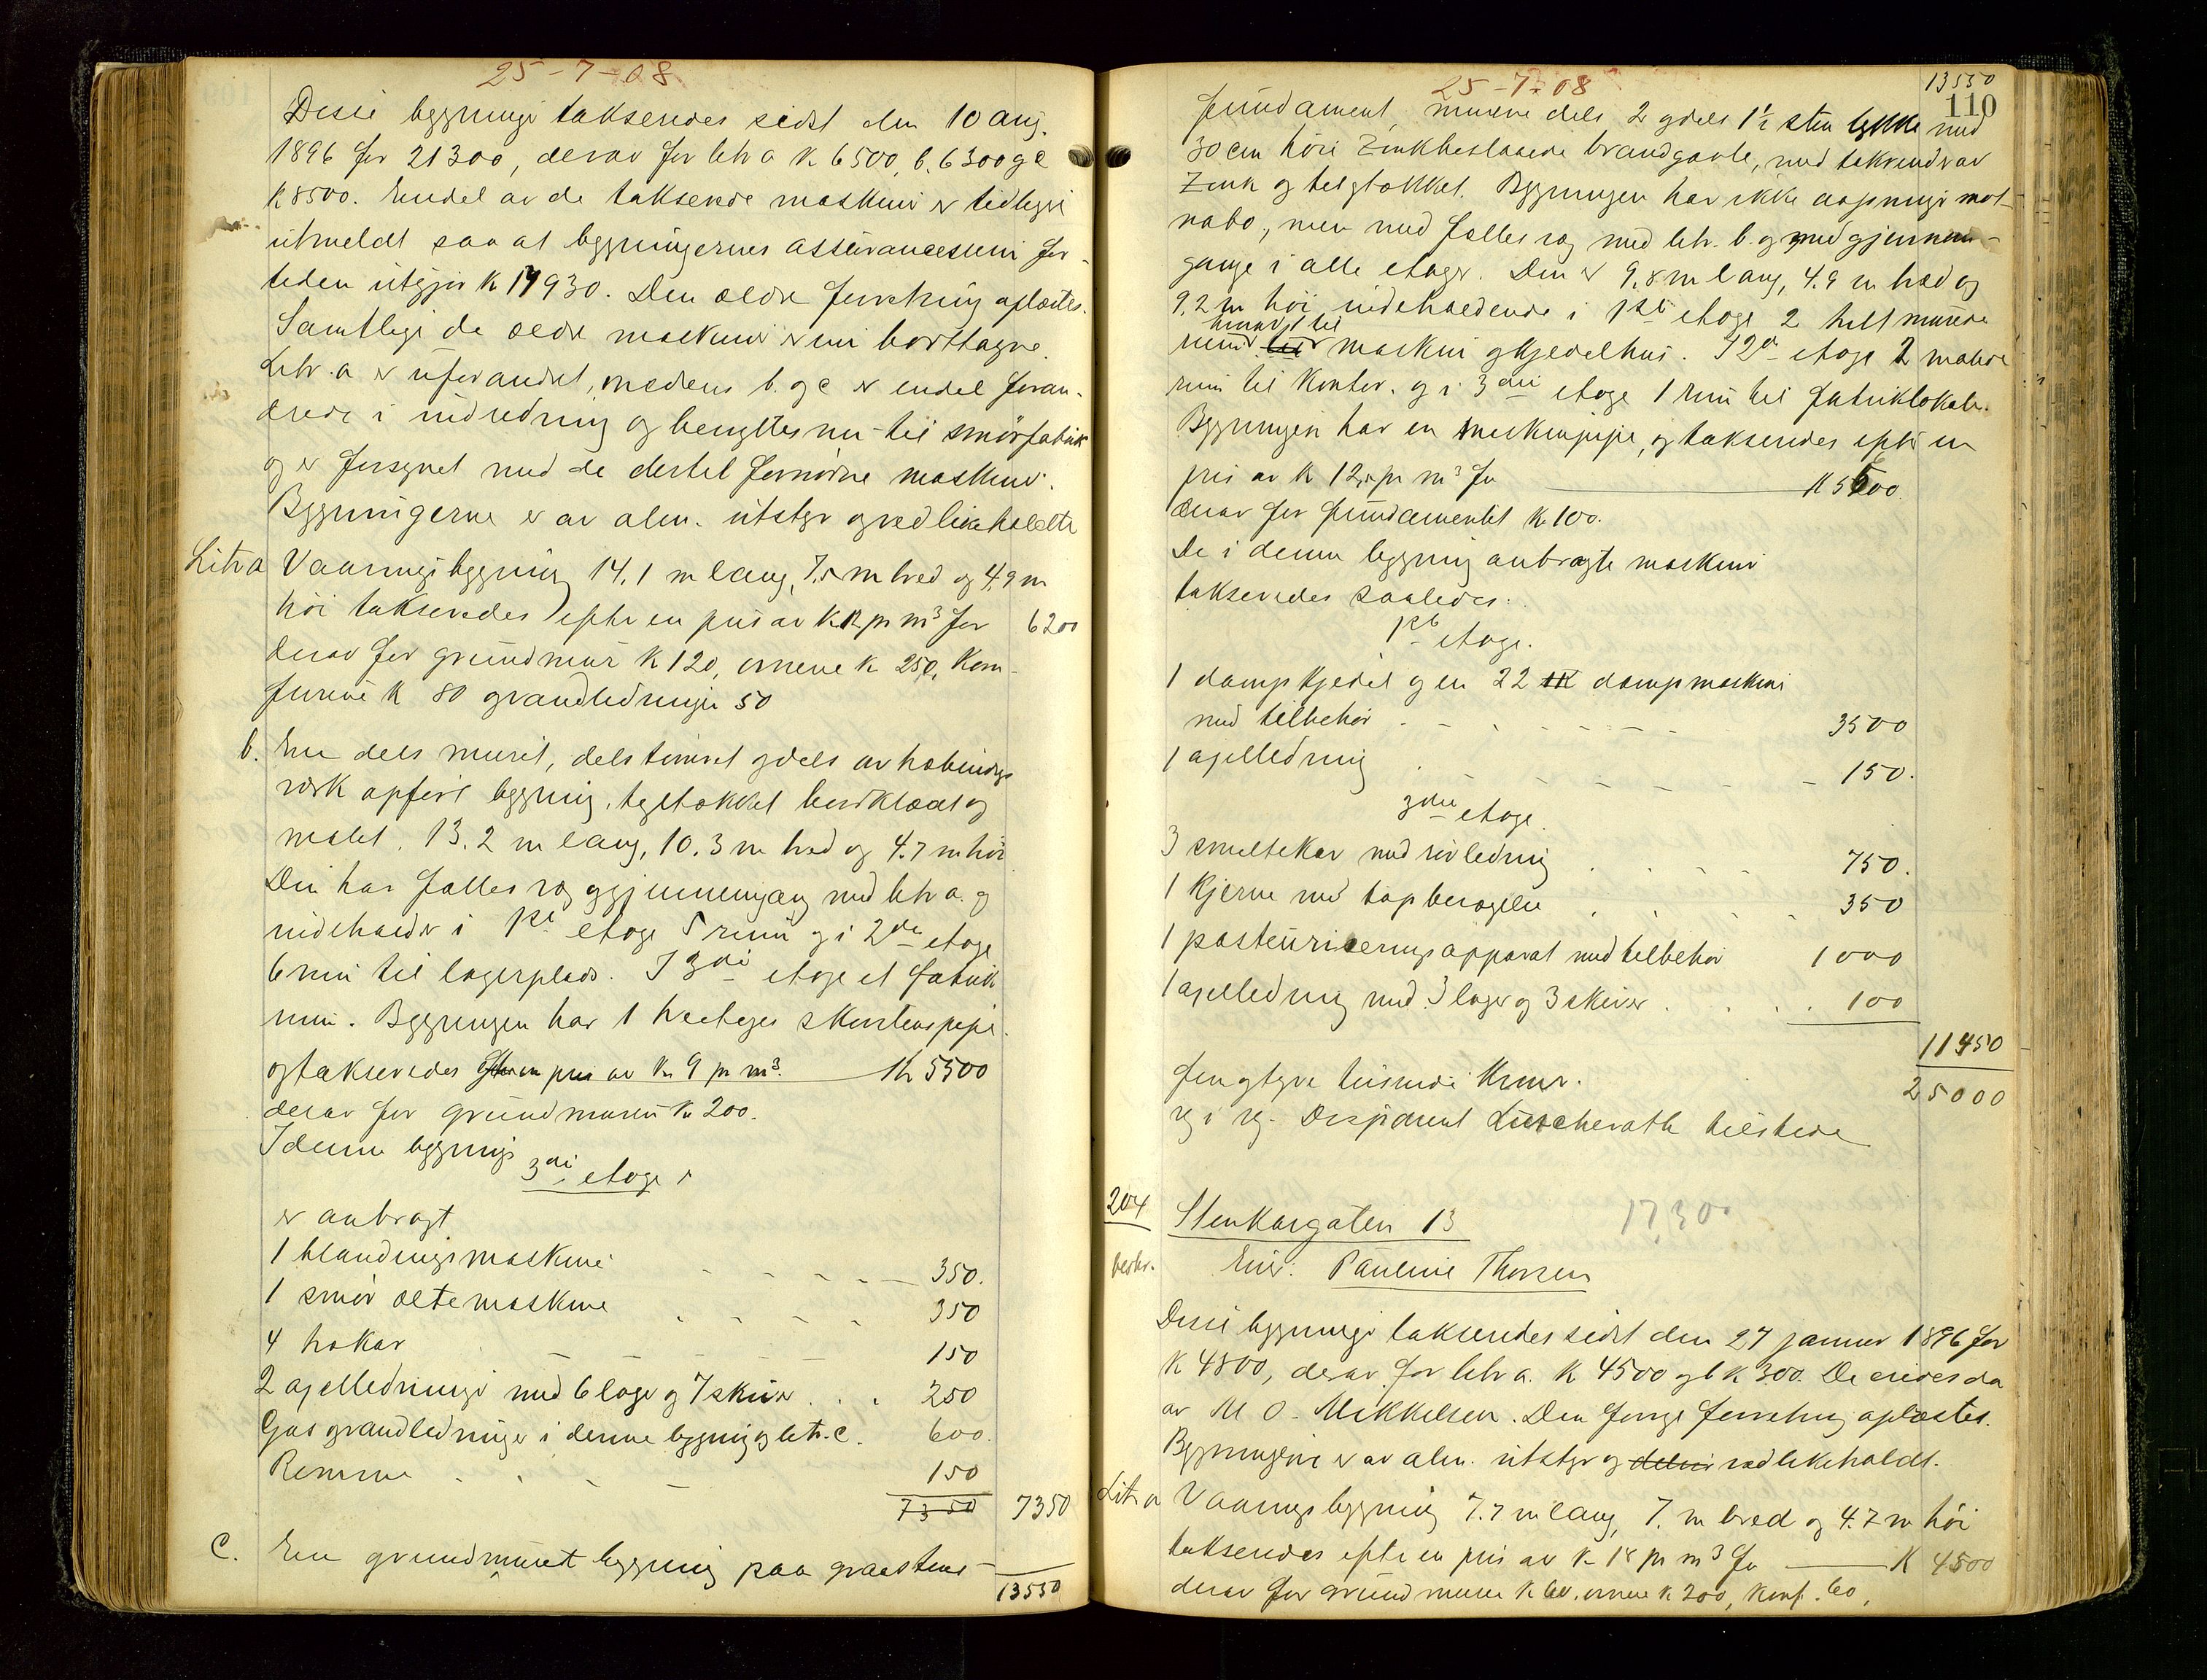 25-7-08
Disse bygninger takseredes sidst den 10 aug.
1896 for 21300, derav for litr a K 6500, b. 6300 og c
K 8500. Endel av de takserede maskiner er tidligere
utmeldt saa at bygningernes assurancesum for-
tiden utgjør K 17930. Den ældre forretning oplæstes.
Samtlige de ældre maskiner er nu borttagne.
Litr. a er uforandret, medens b. og c er endel foran-
drede i indredning og benyttes nu til smørfabrik
og er forsynet med de dertil fornødne maskiner.
Bygningerne er av alm. utstyr og vedlikeholdte
Litr a Vaaningsbygning 14,1 m lang, 7,5 m bred og 4,9 m
høi takseredes efter en pris av K 12 pr m³ for 6200
derav for grundmur K 120, ovnene K 250, kom-
furene K 80 og vandledninger 50
b. En dels muret, dels tømret og dels av bindings
verk opført bygning, tegltækket bordklædt og
malet. 13.2 m lang, 10.3 m bred og 4.7 m høi
Den har fælles væg og gjennemgang med litr a. og
indeholder i 1ste etage 5 rum og i 2den etage
6 rum til lagerplads. I 3die etage et fabrik
rum. Bygningen har 1 treetages skorstenspipe
og takseredes efter en pris av K 9 pr m³. K 5500
derav for grundmuren K 200.
I denne bygnings
3die etage
er anbragt
1 blandingsmaskine 350.
1 smør æltemaskine 350
4 trekar 150
2 axelledninger med 6 lager og 7 skiver 250
Gas og vandledninger i denne bygning og litr. c. 600.
Remme 150
7350 7350
c. En grundmuret bygning paa graastens-
13550
25-7-08
13550
110
fundament, murene dels 2 og dels 1½ sten tykke med
30 cm høie zinkbeslaaede brandgavle, med takrender av
zink og tegltækket. Bygningen har ikke aapninger mot
nabo, men med fælles væg med litr. b. og med gjennem-
gange i alle etager. Den er 9,8 m lang, 4.9 m bred og
9,2 m høi indeholdende i 1ste etage 2 helt murede
rum til maskin og kjedelhus. I 2d etage 2 malede
rum til kontor. og i 3die etage 1 rum til fabriklokale.
Bygningen har en maskinpipe, og takseredes efter en
pris av K 12,5 pr m³ for K 5600
derav for fundamentet K 100.
De i denne bygning anbragte maskiner
takseredes saaledes:
1ste etage.
1 dampkjedel og en 22 HK dampmaskine
med tilbehør 3500
1 axelledning 150.
3die etage.
3 smeltekar med rørledning 750.
1 kjerne med tapbevægelse 350
1 pasteuriseringsapparat med tilbehør 1000
1 axelledning med 3 lager og 3 skiver 100
11450
fem og tyve tusinde kroner. 25000
Disponent Lüscherath tilstede
204 Stenkargaten 13 17,300
beskr. Eier: Pauline Thorsen
Disse bygninger takseredes sidst den 27 januar 1896 for
K 4800, derav for litr a. K 4500 og b K 300. De eiedes da
av M O. Mikkelsen. Den forrige forretning oplæstes.
Bygningerne er av alm. utstyr og vedlikeholdt.
Litr a Vaaningsbygning 7.7 m lang, 7. m bred og 4.7 m høi
takseredes efter en pris av K 18 pr m³ for K 4500
derav for grundmuren K 60. ovnene K 200, komf. 60,